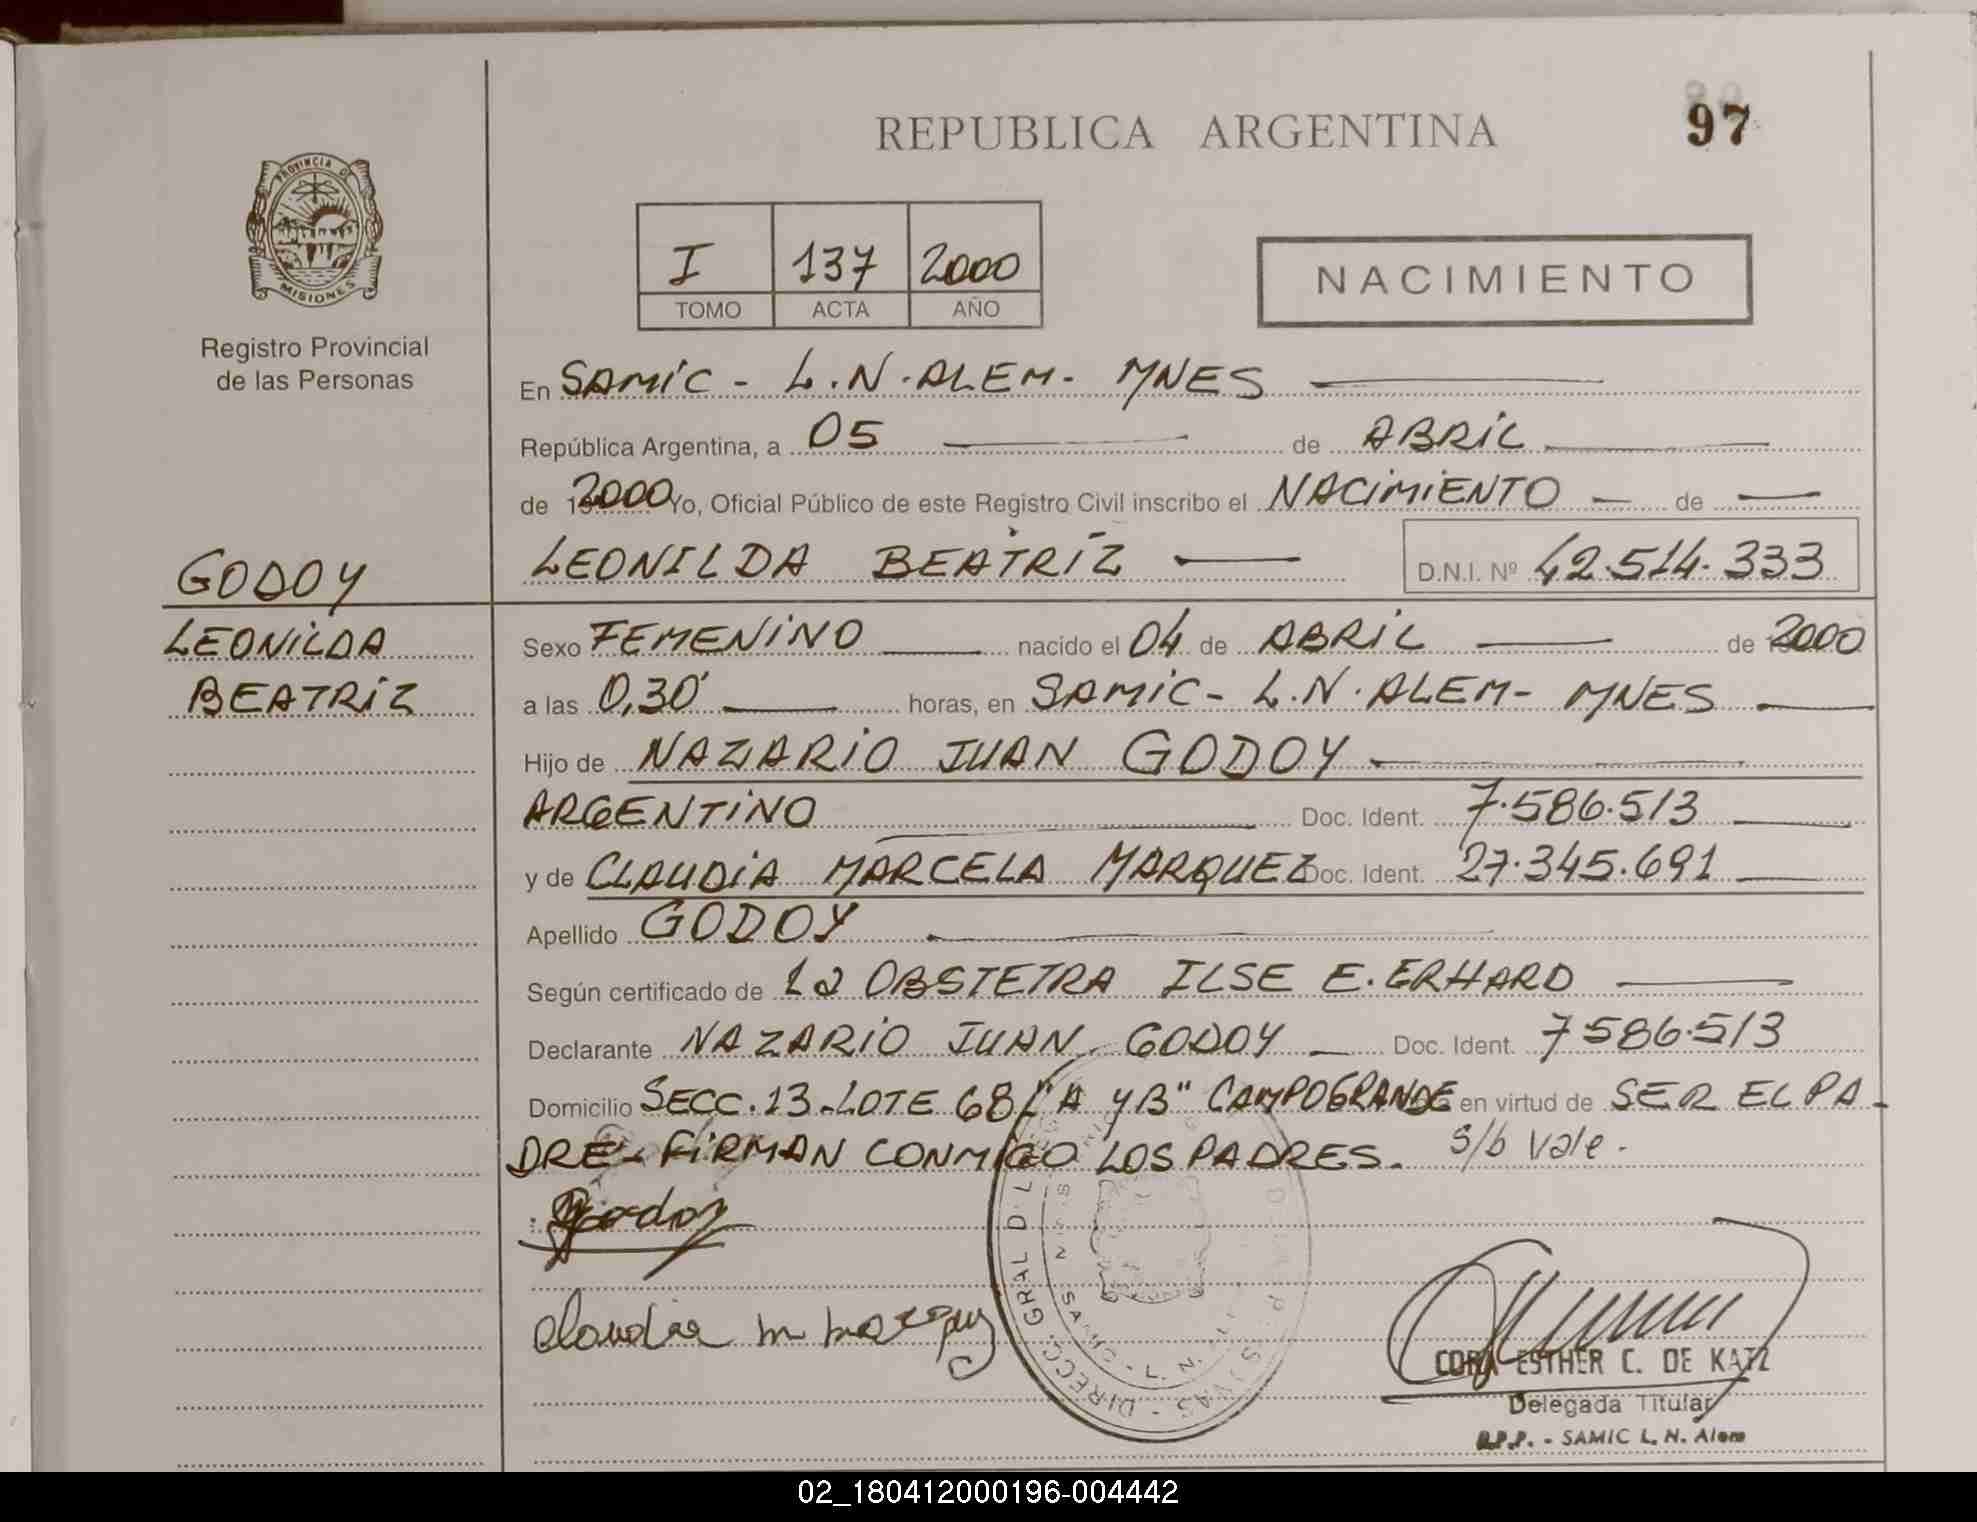 REPUBLICA ARGENTINA
97
PROVINCIA DE
MISIONES
Registro Provincial
de las Personas
I 137 2000
TOMO ACTA AÑO
NACIMIENTO
En SAMIC - L.N.ALEM- MNES
República Argentina, a 05 de ABRIL
de 2000 Yo, Oficial Público de este Registro Civil inscribo el NACIMIENTO de
LEONILDA BEATRIZ D.N.I. Nº 42.514.333
GODOY
LEONILDA
BEATRIZ
Sexo FEMENINO nacido el 04 de ABRIL de 2000
a las 0,30' horas, en SAMIC- L.N.ALEM- MNES
Hijo de NAZARIO JUAN GODOY
ARGENTINO Doc. Ident. 7.586.513
y de CLAUDIA MARCELA MARQUEZ Doc. Ident. 27.345.691
Apellido GODOY
Según certificado de La OBSTETRA ILSE E. ERHARD
Declarante NAZARIO JUAN GODOY Doc. Ident. 7586.513
Domicilio SECC.13-LOTE 68 "A y B" CAMPOGRANDE en virtud de SER EL PA-
DRE.- FIRMAN CONMIGO LOS PADRES. S/b Vale.
Godoy
Claudia M Marquez
DIRECC. GRAL D L
CORA ESTHER C. DE KATZ
Delegada Titular
R.P.P. - SAMIC L. N. Alem
02_180412000196-004442